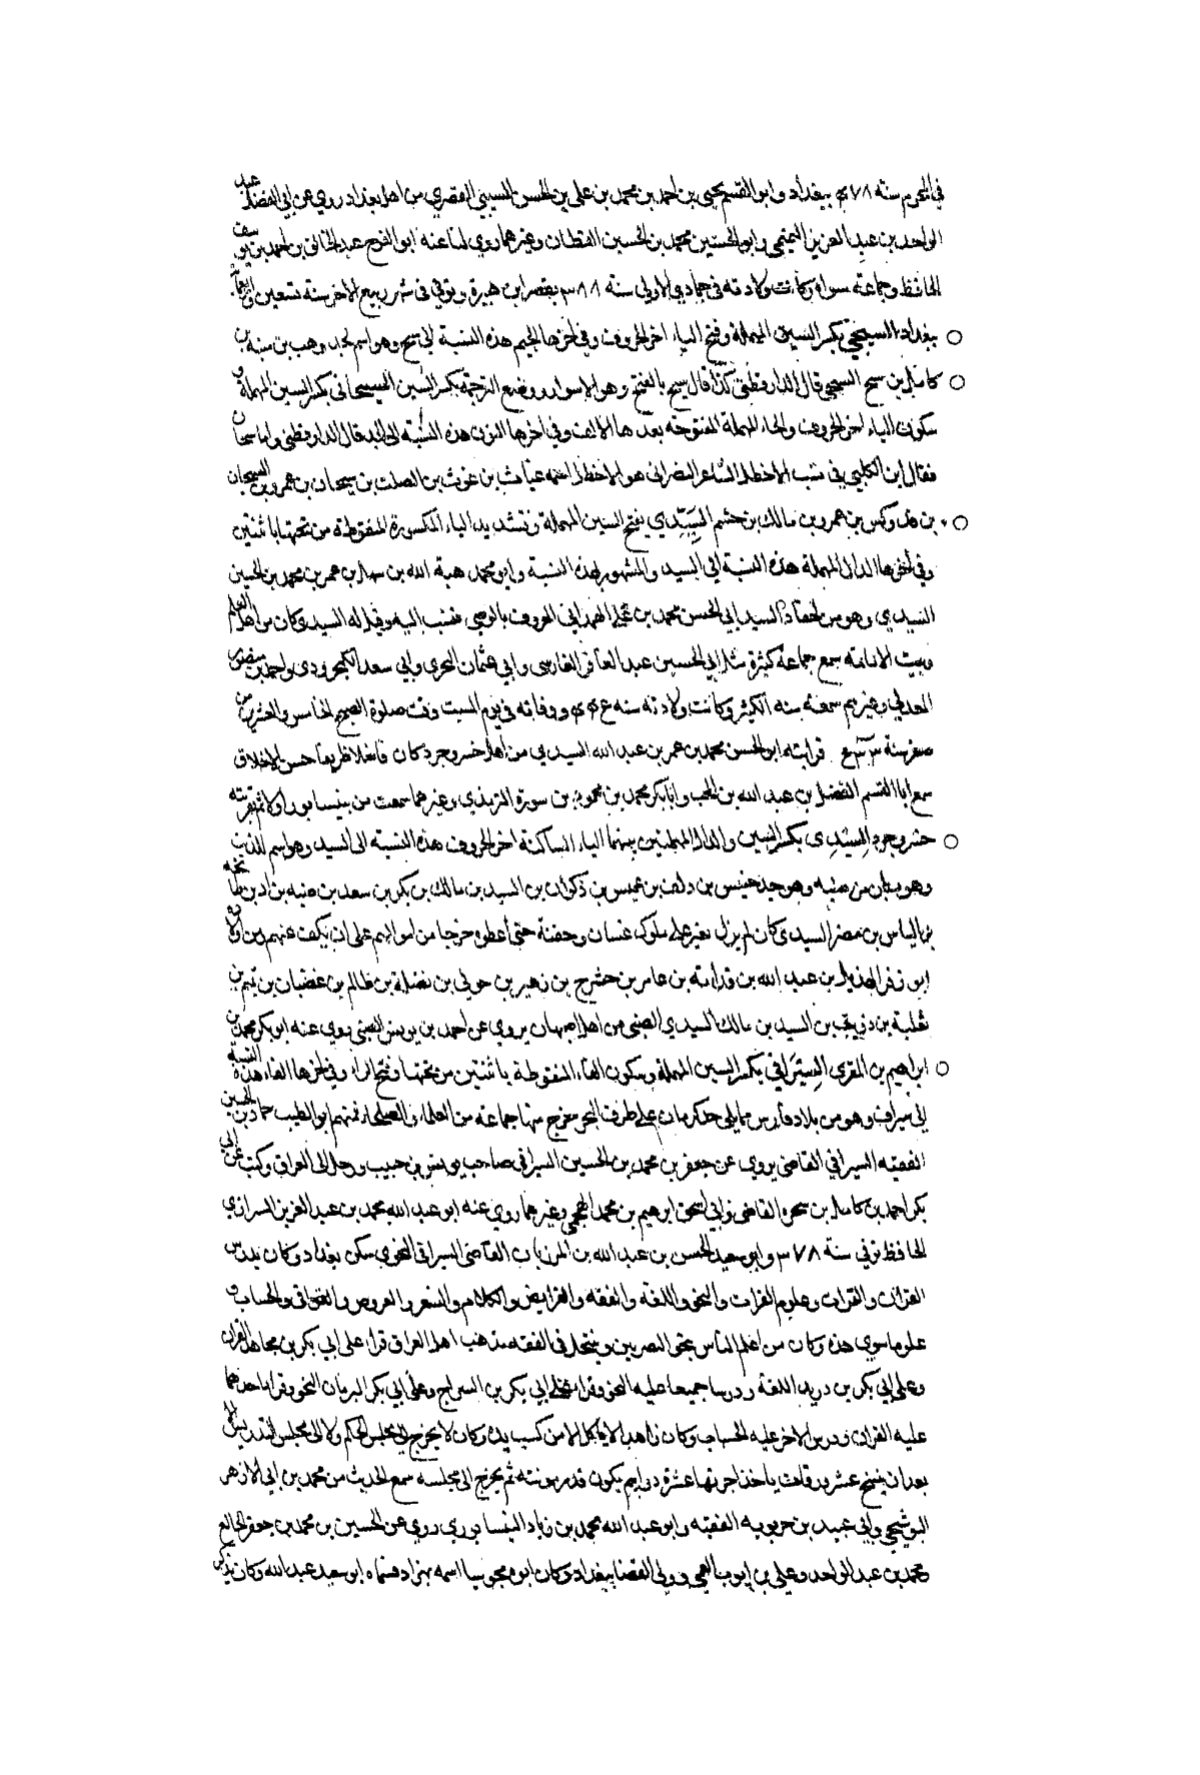 في المحرم سنة ٤٧٨ ببغداد وابو القسم يحيى بن احمد بن محمد بن علي بن الحسن السيبي القصري من اهل بغداد روى عن ابي الفضل عبد
الواحد بن عبد العزيز التميمي وابي الحسين محمد بن الحسين القطان وغيرهما روى لنا عنه ابو الفرج عبد الخالق بن احمد بن يوسف
الحافظ وجماعة سواه وكانت ولادته في جمادي الاولى سنة ٣٨٨ بقصر ابن هبيرة وتوفي في شهر ربيع الاخر سنة تسعين
ببغداد السيجي بكسر السين المهملة وفتح الياء اخر الحروف وفي اخرها الجيم هذه النسبة الى سيج وهو اسم لجد وهب بن منبه بن
كامل بن سيج السيجي قال الدارقطني كذا قال سيج بالفتح وهو الاسوار ووضع الترجمة بكسر السين السيحاني بكسر السين المهملة و
سكون الياء اخر الحروف والحاء المهملة المفتوحة بعدها الالف وفي اخرها النون هذه النسبة الى الجد قال الدارقطني واما سيحان
فقال ابن الكلبي في نسب الاخطل الشاعر النصراني هو الاخطل اسمه غياث بن غوث بن الصلت بن سيحان بن عمرو بن السيحان
بن فدوكس بن عمرو بن مالك بن جشم السيدي بفتح السين المهملة وتشديد الياء المكسورة المنقوطة من تحتها باثنتين
وفي اخرها الدال المهملة هذه النسبة الى السيد والمشهور بهذه النسبة وابو محمد هبة الله بن سهل بن عمر بن محمد بن الحسين
السيدي وهو من احفاد السيد ابي الحسن محمد بن علي الهمداني المعروف بالوصي فنسب اليه وقيل له السيدي كان من اهل العلم
وبيت الامامة سمع جماعة كثيرة مثل ابي الحسين عبد الغافر الفارسي وابي عثمان البحيري وابي سعد الكنجرودي واحمد بن منصور
المغربي وغيرهم سمعت منه الكثير وكانت ولادته سنة ووفاته في يوم السبت وقت صلوة الصبح الخامس والعشرين من
صفر سنة قرابته ابو الحسن محمد بن عمر بن عبد الله السيدي من اهل خسروجرد كان فاضلا ظريفا حسن الاخلاق
سمع ابا القسم الفضل بن عبد الله بن المحب وابا بكر محمد بن محمود بن سورة التميمي وغيرهما سمعت من بنيسابور اولا ثم بقريته
خسروجرد السيدي بكسر السين والدال المهملتين بينهما الياء الساكنة اخر الحروف هذه النسبة الى السيد وهو اسم للذئب
وهو بطن من ضبة وهو جد خنيس بن دلف بن عميس بن ذكوان بن السيد بن مالك بن بكر بن سعد بن ضبة بن اد بن طابخة
بن الياس بن مضر السيدي كان لم يزل يغير على ملوك غسان وجفنة حتى أعطوه خرجا من اموالهم على ان يكف عنهم ومن اولاده
ابو زفر الهذيل بن عبد الله بن قدامة بن عامر بن حشرج بن زهير بن خولي بن نضلة بن ظالم بن غضبان بن تيم بن
ثعلبة بن ذؤيب بن السيد بن مالك السيدي الضبي من اهل اصبهان يروي عن احمد بن يونس الضبي روى عنه ابو بكر محمد بن
ابراهيم بن المقري السيرافي بكسر السين المهملة وسكون الياء المنقوطة باثنتين من تحتها وفتح الراء وفي اخرها الفاء هذه النسبة
الى سيراف وهو من بلاد فارس مما يلي حد كرمان على طرف البحر خرج منها جماعة من العلماء والصلحاء فمنهم ابو الطيب حماد بن الحسين
الفقيه السيرافي القاضي يروي عن جعفر بن محمد بن الحسين السيرافي صاحب يونس بن حبيب ورحل الى العراق وكتب عن ابي
بكر احمد بن كامل بن شجرة القاضي وابي اسحق ابرهيم بن محمد الهجيمي وغيرهما روى عنه ابو عبد الله محمد بن عبد العزيز الشيرازي
الحافظ توفي سنة ٣٧٨ وابو سعيد الحسن بن عبد الله بن المرزبان القاضي السيرافي النحوي سكن بغداد وكان يدرس
القران والقراات وعلوم القرات والنحو واللغة والفقه والفرايض والكلام والشعر والعروض والقوافي والحساب و
علوما سوى هذه وكان من اعلم الناس بنحو البصريين وينتحل في الفقه مذهب اهل العراق قرا على ابي بكر بن مجاهد القران
وعلى ابي بكر بن دريد اللغة ودرسا جميعا عليه النحو وقرا على ابي بكر بن السراج وعلى ابي بكر المبرمان النحو وقرا احدهما
عليه القران ودرس الاخر عليه الحساب وكان زاهدا لا ياكل الا من كسب يده وكان لا يخرج الى مجلس الحكم ولا الى مجلس التدريس الا
بعد ان ينسخ عشر ورقات ياخذ اجرتها عشرة دراهم يكون قدر مونته ثم يخرج الى مجلسه سمع الحديث من محمد بن ابي الازهر
البوشنجي وابي عبيد بن حربويه الفقيه وابو عبد الله محمد بن زياد النيسابوري روى عنه الحسين بن محمد بن جعفر الخالع
محمد بن عبد الواحد وعلي بن ايوب القمي وولي القضا ببغداد وكان ابوه مجوسيا اسمه بهزاد فسماه ابو سعيد عبد الله وكان يذكر